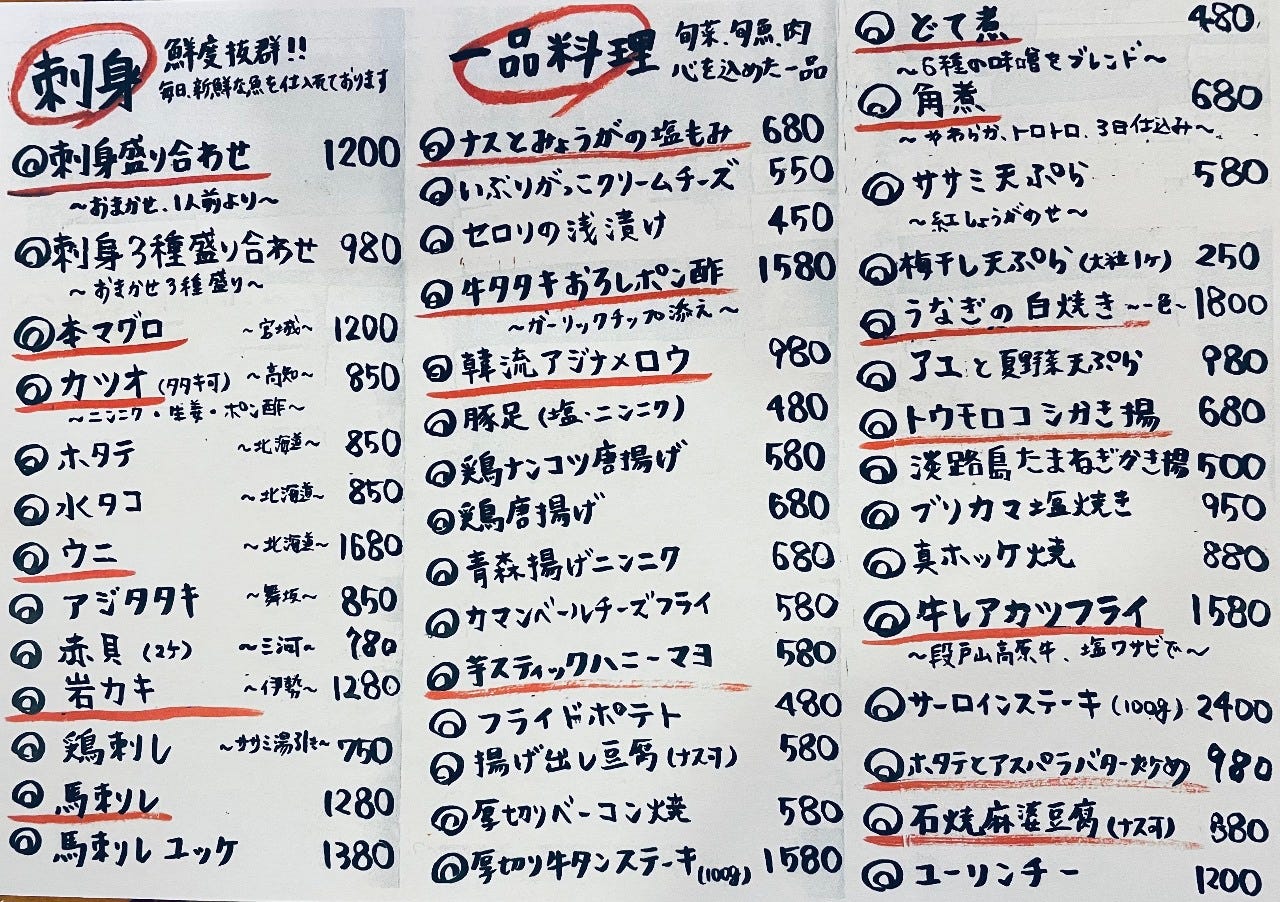 刺身
鮮度抜群!!
毎日、新鮮な魚を仕入れております
刺身盛り合わせ 1200
〜おまかせ、1人前より〜
刺身3種盛り合わせ 980
〜おまかせ3種盛り〜
本マグロ 〜宮城〜 1200
カツオ (タタキ可) 〜高知〜 850
〜ニンニク・生姜・ポン酢〜
ホタテ 〜北海道〜 850
水タコ 〜北海道〜 850
ウニ 〜北海道〜 1680
アジタタキ 〜舞坂〜 850
赤貝 (2ケ) 〜三河〜 780
岩カキ 〜伊勢〜 1280
鶏刺し 〜ササミ湯引き〜 750
馬刺し 1280
馬刺しユッケ 1380
一品料理
旬菜、旬魚、肉
心を込めた一品
ナスとみょうがの塩もみ 680
いぶりがっこクリームチーズ 550
セロリの浅漬け 450
牛タタキおろしポン酢 1580
〜ガーリックチップ添え〜
韓流アジナメロウ 980
豚足 (塩・ニンニク) 480
鶏ナンコツ唐揚げ 580
鶏唐揚げ 680
青森揚げニンニク 680
カマンベールチーズフライ 580
芋スティックハニーマヨ 580
フライドポテト 480
揚げ出し豆腐 (ナス可) 580
厚切りベーコン焼 580
厚切り牛タンステーキ (100g) 1580
どて煮 480
〜6種の味噌をブレンド〜
角煮 680
〜やわらか、トロトロ、3日仕込み〜
ササミ天ぷら 580
〜紅しょうがのせ〜
梅干し天ぷら (大粒1ケ) 250
うなぎの白焼き 〜一色〜 1800
アユと夏野菜天ぷら 980
トウモロコシかき揚 680
淡路島たまねぎかき揚 500
ブリカマ塩焼き 950
真ホッケ焼 880
牛レアカツフライ 1580
〜段戸山高原牛、塩ワサビで〜
サーロインステーキ (100g) 2400
ホタテとアスパラバター炒め 980
石焼麻婆豆腐 (ナス可) 880
ユーリンチー 1200